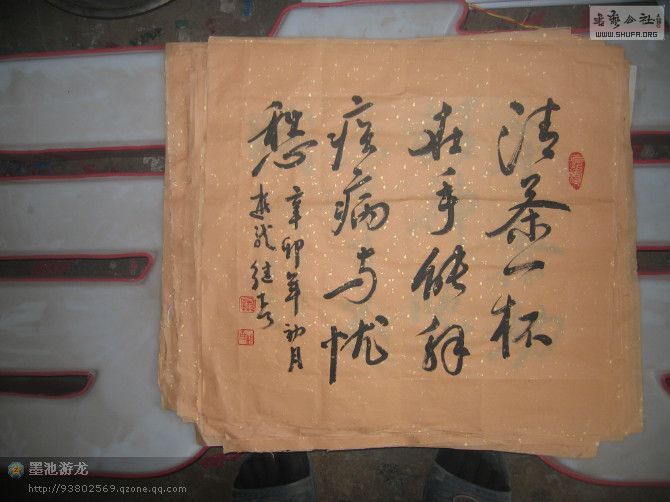 清茶一杯
在手能释
疾病与忧
愁 辛卯年初月
书艺公社
WWW.SHUFA.ORG
墨池游龙
http://93802569.qzone.qq.com